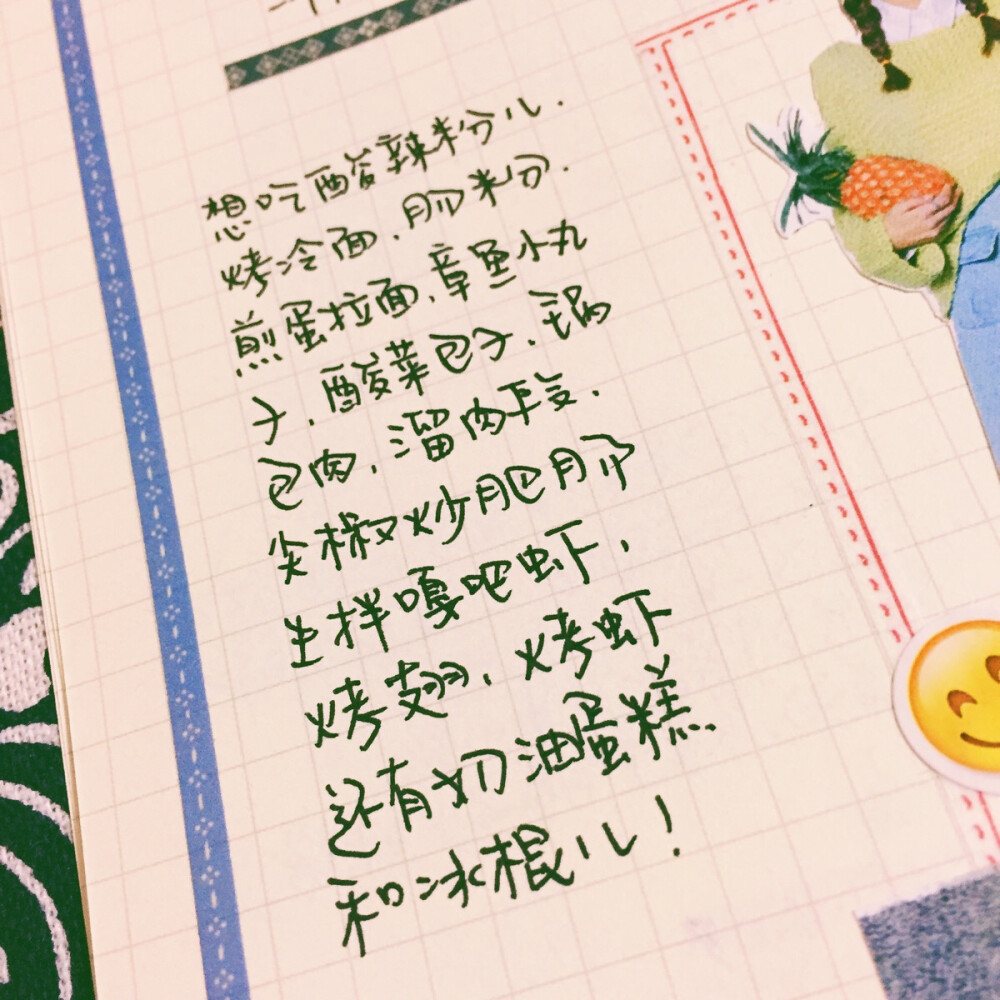 想吃酸辣粉儿.
烤冷面.肠粉.
煎蛋拉面.章鱼小丸
子.酸菜包子.锅
包肉.溜肉段.
尖椒炒肥肠
生拌嘎吧虾,
烤翅.烤虾
还有奶油蛋糕
和冰棍儿!